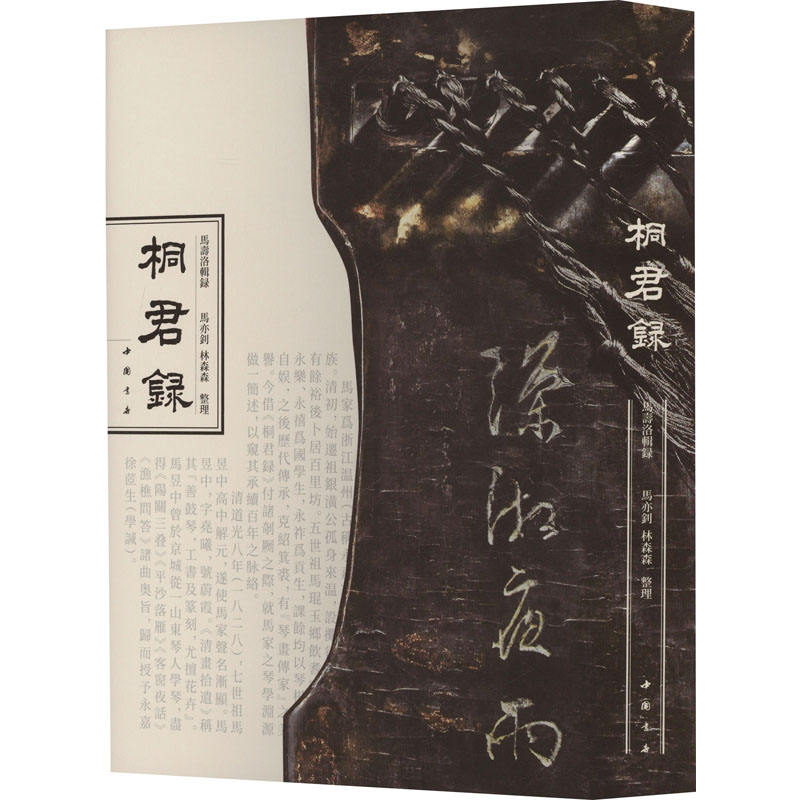 桐君録
馬壽洛輯録 馬亦釗 林森森 整理
中国書店
馬家爲浙江温州(古稱
族。清初，始遷祖銀潢公孤身來温，設攤
有餘裕後卜居百里坊。五世祖馬琨玉鄉飲耆
永樂、永禧爲國學生，永祚爲貢生，課餘均以琴
自娱，之後歷代傳承，克紹箕裘，有『琴畫傳家』之美
譽。今借《桐君録》付諸剞劂之際，就馬家之琴學淵源
做一簡述，以窺其承續百年之脉絡。
清道光八年(一八二八)，七世祖馬
昱中高中解元，遂使馬家聲名漸顯。馬
昱中，字堯曦，號蔚霞。《清畫拾遺》稱
其『善鼓琴，工書及篆刻，尤擅花卉』。
馬昱中曾於京城從一山東琴人學琴，盡
得《陽關三叠》《平沙落雁》《客窗夜話》
《漁樵問答》諸曲奥旨，歸而授予永嘉
徐蒞生(學誠)。
瀟湘夜雨
桐君録
馬壽洛輯録 馬亦釗 林森森 整理
中国書店